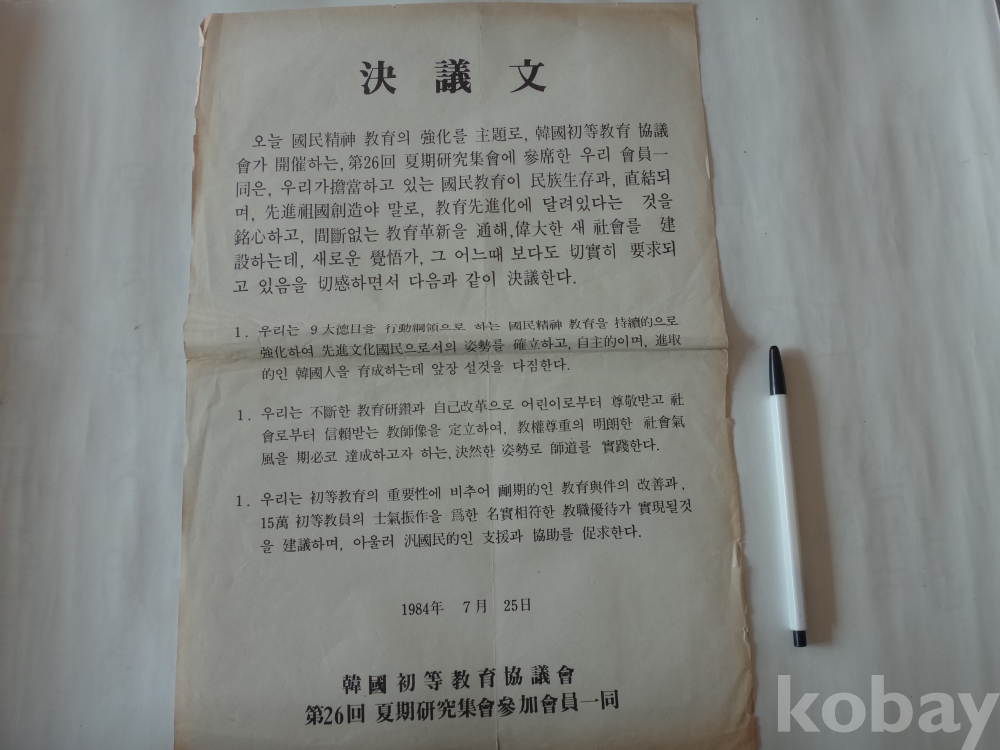 決議文
오늘 國民精神 教育의 強化를 主題로, 韓國初等教育 協議
會가 開催하는, 第26回 夏期研究集會에 參席한 우리 會員一
同은, 우리가擔當하고 있는 國民教育이 民族生存과, 直結되
며, 先進祖國創造야 말로, 教育先進化에 달려있다는 것을
銘心하고, 間斷없는 教育革新을 通해,偉大한 새 社會를 建
設하는데, 새로운 覺悟가, 그 어느때 보다도 切實히 要求되
고 있음을 切感하면서 다음과 같이 決議한다.
1. 우리는 9大德目을 行動綱領으로 하는 國民精神 教育을 持續的으로
強化하여 先進文化國民으로서의 姿勢를 確立하고, 自主的이며, 進取
的인 韓國人을 育成하는데 앞장 설것을 다짐한다.
1. 우리는 不斷한 教育研鑽과 自己改革으로 어린이로부터 尊敬받고 社
會로부터 信賴받는 教師像을 定立하여, 教權尊重의 明朗한 社會氣
風을 期必코 達成하고자 하는, 決然한 姿勢로 師道를 實踐한다.
1. 우리는 初等教育의 重要性에 비추어 劃期的인 教育與件의 改善과,
15萬 初等教員의 士氣振作을 爲한 名實相符한 教職優待가 實現될것
을 建議하며, 아울러 汎國民的인 支援과 協助를 促求한다.
1984年 7月 25日
韓國初等教育協議會
第26回 夏期研究集會參加會員一同
kobay